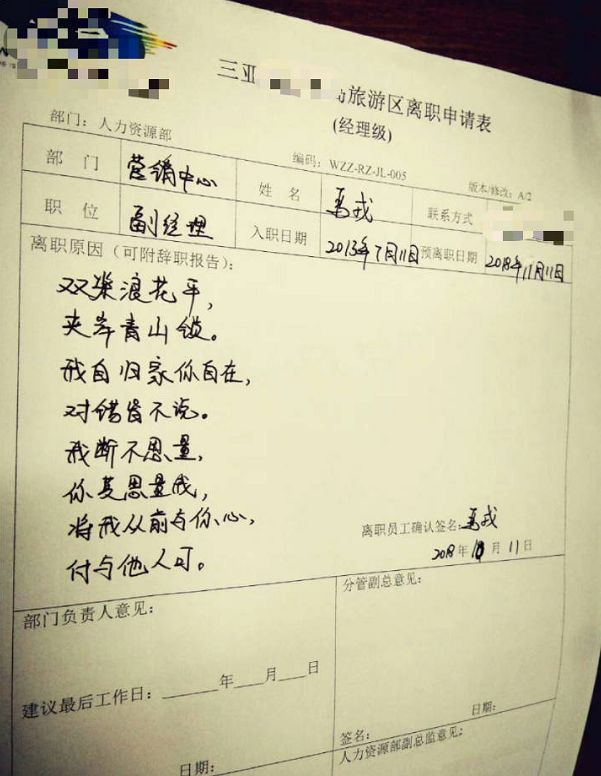 三亚 岛旅游区离职申请表
(经理级)
部门：人力资源部 编码：WZZ-RZ-JL-005 版本/修改：A/2
部 门 营销中心 姓 名 禹戎 联系方式
职 位 副经理 入职日期 2013年7月11日 预离职日期 2018年11月11日
离职原因（可附辞职报告）：
双桨浪花平，
夹岸青山锁。
我自归家你自在，
对错皆不说。
我断不思量，
你莫思量我，
将我从前与你心，
付与他人可。
离职员工确认签名：禹戎
2018年10月11日
部门负责人意见： 分管副总意见：
建议最后工作日：______年____月____日
签名： 日期：
日期： 人力资源部副总监意见：